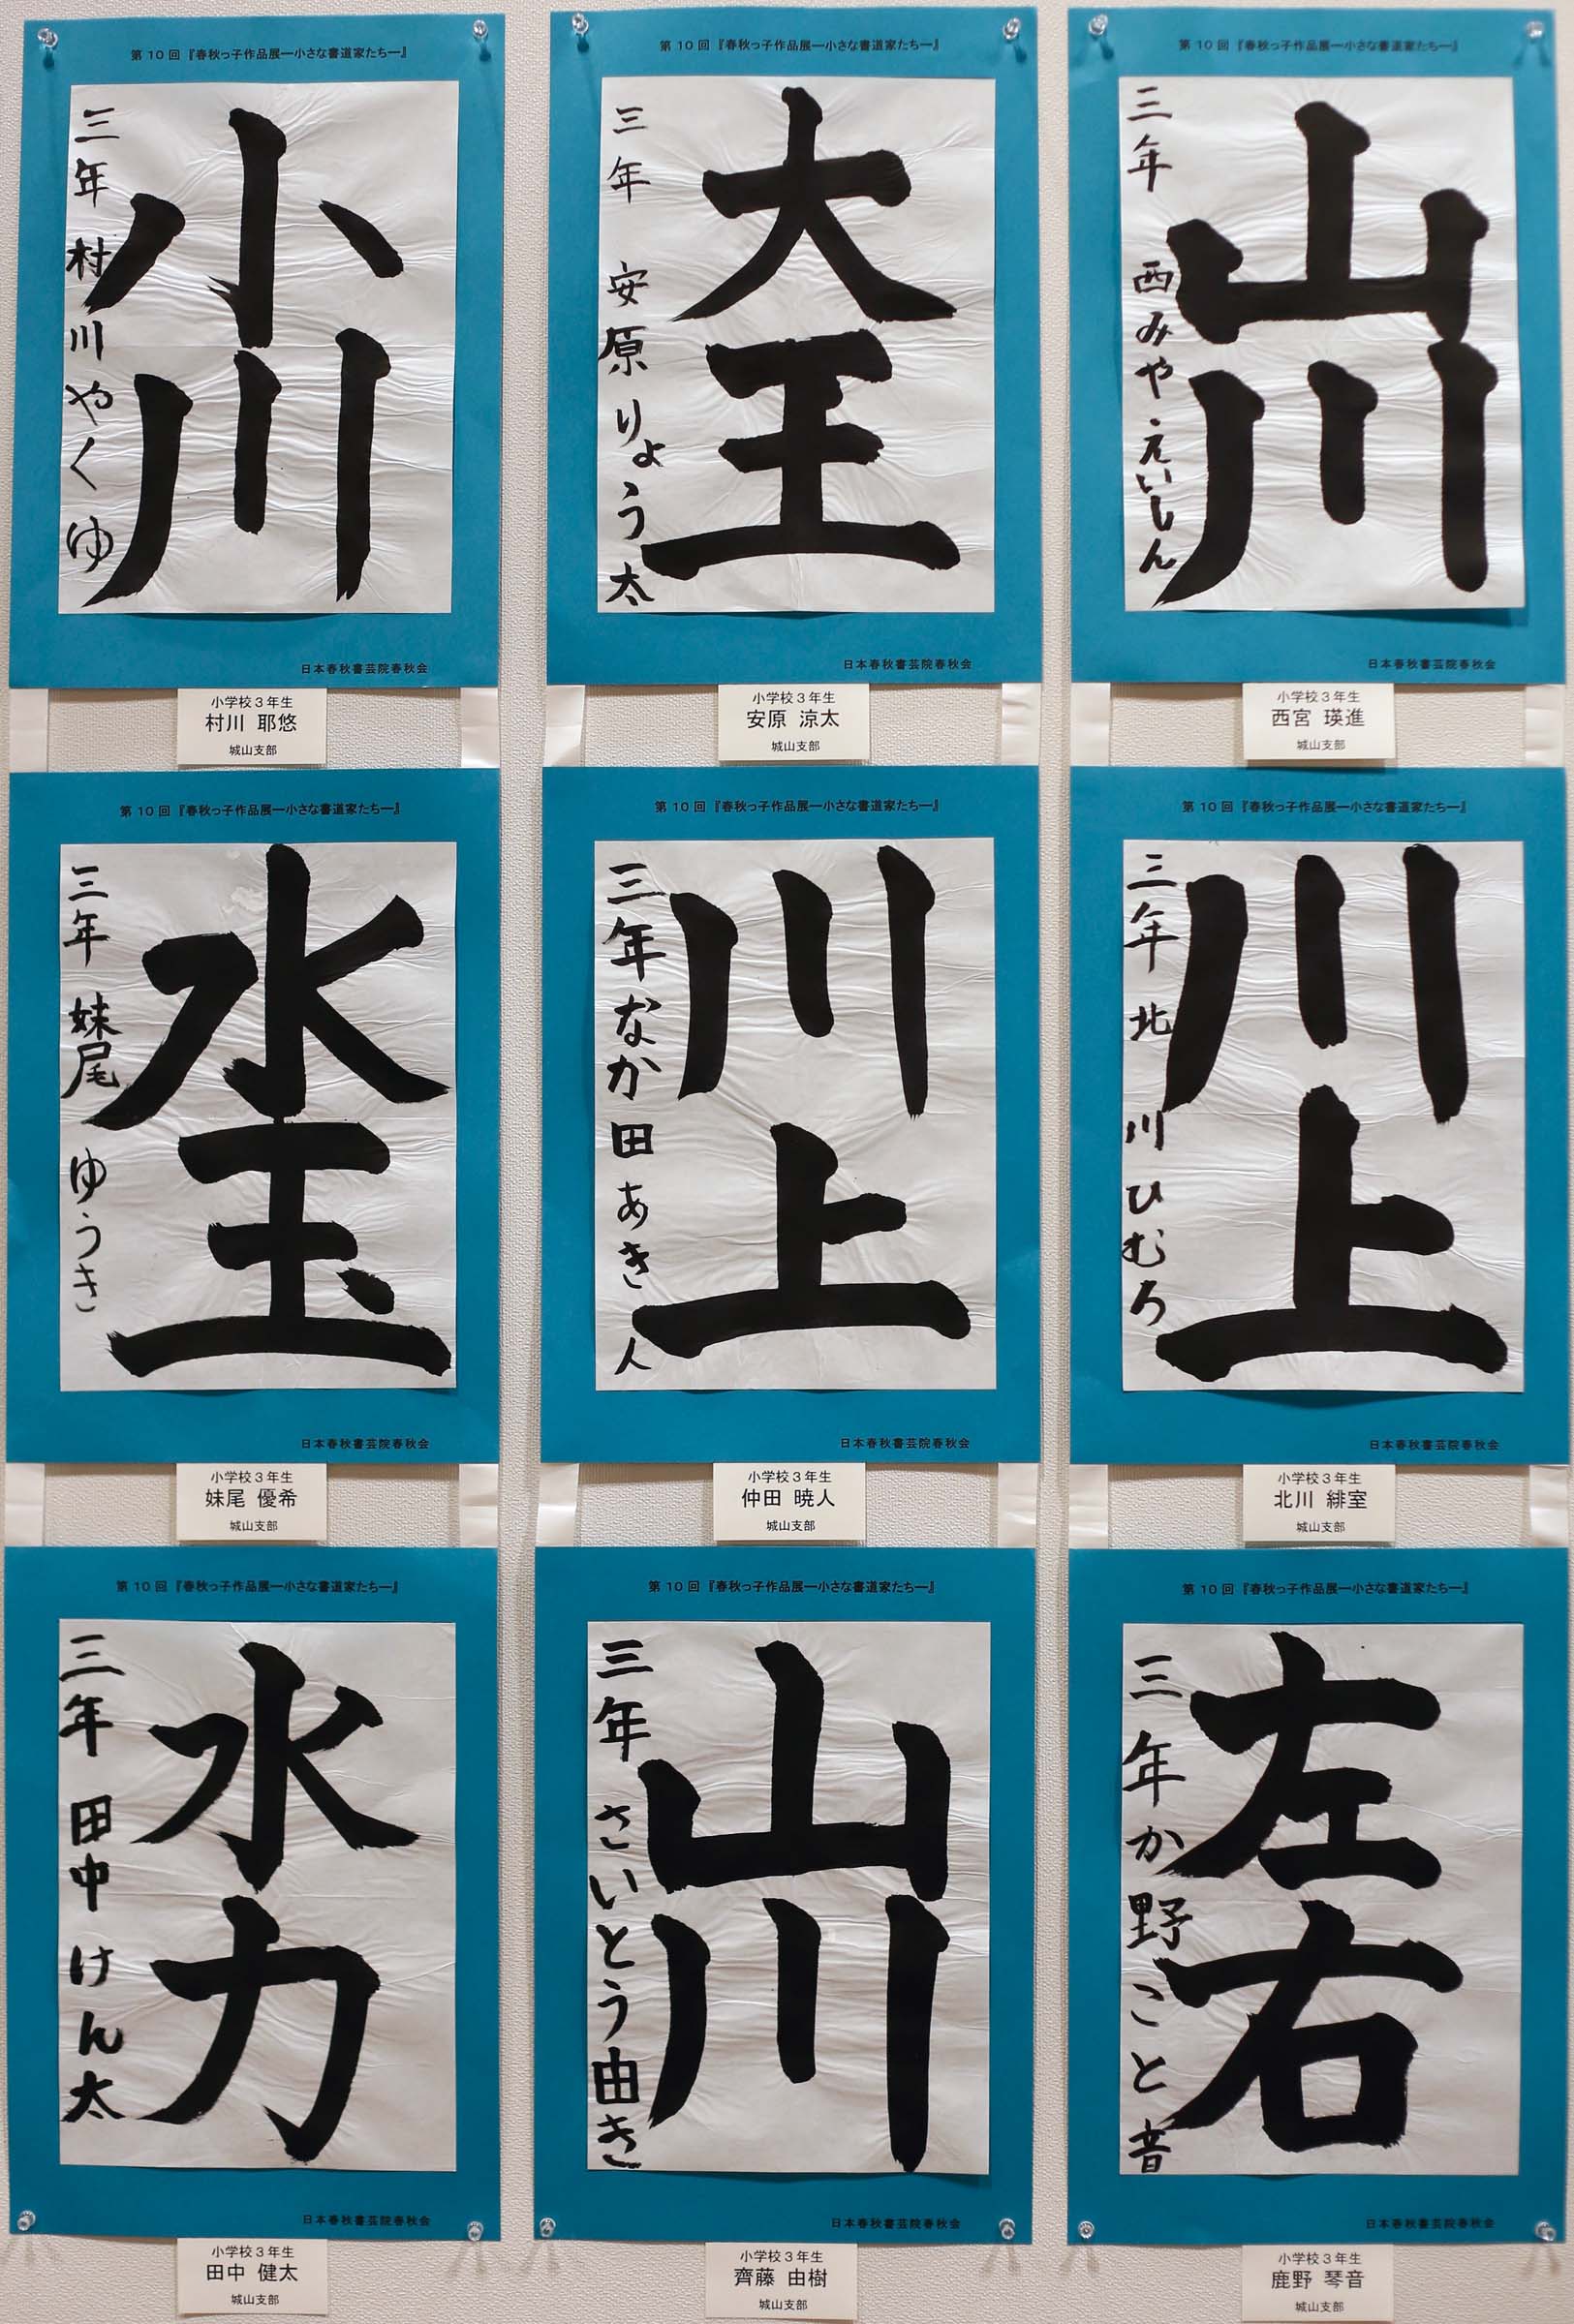 第10回『春秋っ子作品展―小さな書道家たち―』
小川
三年 村川やくゆ
日本春秋書芸院春秋会
小学校3年生
村川 耶悠
城山支部
第10回『春秋っ子作品展―小さな書道家たち―』
大王
三年 安原りょう太
日本春秋書芸院春秋会
小学校3年生
安原 涼太
城山支部
第10回『春秋っ子作品展―小さな書道家たち―』
山川
三年 西みやえいしん
日本春秋書芸院春秋会
小学校3年生
西宮 瑛進
城山支部
第10回『春秋っ子作品展―小さな書道家たち―』
水玉
三年 妹尾ゆうき
日本春秋書芸院春秋会
小学校3年生
妹尾 優希
城山支部
第10回『春秋っ子作品展―小さな書道家たち―』
川上
三年なか田あき人
日本春秋書芸院春秋会
小学校3年生
仲田 暁人
城山支部
第10回『春秋っ子作品展―小さな書道家たち―』
川上
三年 北川ひむろ
日本春秋書芸院春秋会
小学校3年生
北川 緋室
城山支部
第10回『春秋っ子作品展―小さな書道家たち―』
水力
三年 田中けん太
日本春秋書芸院春秋会
小学校3年生
田中 健太
城山支部
第10回『春秋っ子作品展―小さな書道家たち―』
山川
三年 さいとう由き
日本春秋書芸院春秋会
小学校3年生
齊藤 由樹
城山支部
第10回『春秋っ子作品展―小さな書道家たち―』
左右
三年か野こと音
日本春秋書芸院春秋会
小学校3年生
鹿野 琴音
城山支部